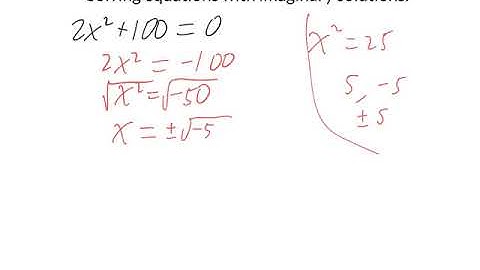 Solving equations with imaginary solutions.
2x² + 100 = 0
2x² = -100
√x² = √-50
x = ±√-5
x² = 25
5, -5
±5